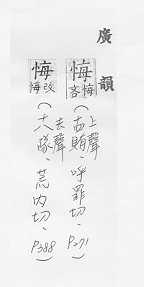 廣韻
悔 悔吝(上聲、十四賄、呼罪切、P.271)
悔 改悔(去聲、十八隊、荒內切、P388)